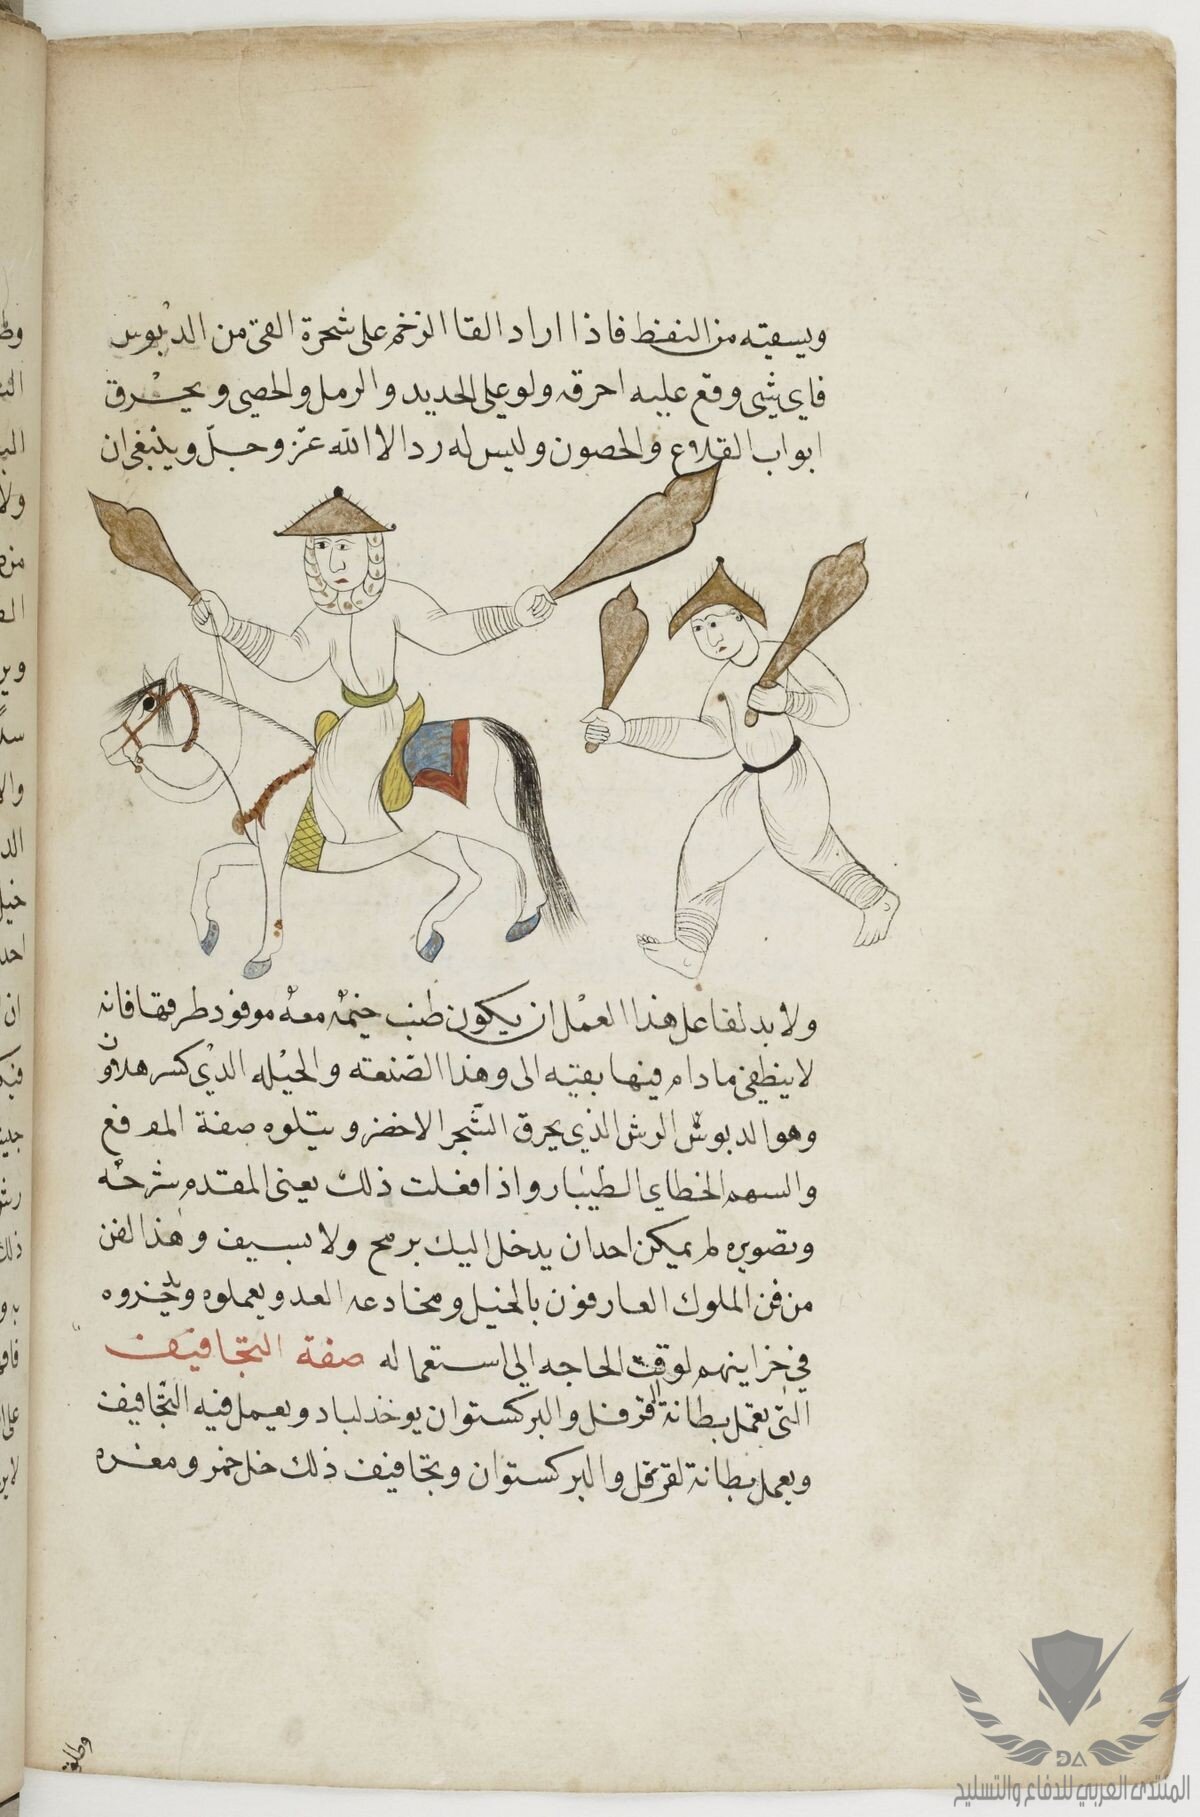 ويسقيه من النفط فاذا اراد القا الزخم على شحرة القى من الدبوس
فاي شي وقع عليه احرقه ولو على الحديد والرمل والحصى ويحرق
ابواب القلاع والحصون وليس له رد الا الله عز وجل وينبغى ان
ولا بد لفاعل هذا العمل ان يكون طنب خيمه معه موقود طرفها فانه
لا ينطفي ما دام فيها بقيه الى وهذا الصنعته والحيله الذي كسر هلاون
وهو الدبوس الرش الذي يحرق الشجر الاخضر وسيتلوه صفة المدفع
والسهم الخطاي الطيار واذا فعلت ذلك يعنى المقدم شرحه
وتصويره لم يمكن احد ان يدخل اليك برمح ولا بسيف وهذا الفن
من فن الملوك العارفون بالحيل ومخادعه العدو يعملوه ويدخروه
في خزاينهم لوقت الحاجه الى استعماله صفة التجافيف
التى تعمل بطانة القرقل والبركستوان يوخد لباد ويعمل فيه التجافيف
ويعمل بطانة لقرقل والبركستوان وتجافيف ذلك خل خمر ومغره
وطلق
DA
المنتدى العربي للدفاع والتسليح